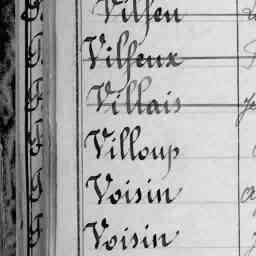 Vilfeu
Vilfeux
Villais
Villoup
Voisin
Voisin